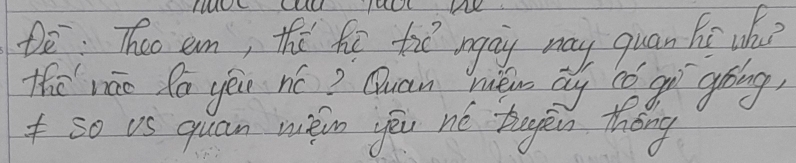 Đề : Theo em, thế hệ trẻ ngày nay quan hệ như
thế nào là yêu nc ? Quan niệm ấy có gì giống,
≠ so vs quan niệm yêu nc truyền thống